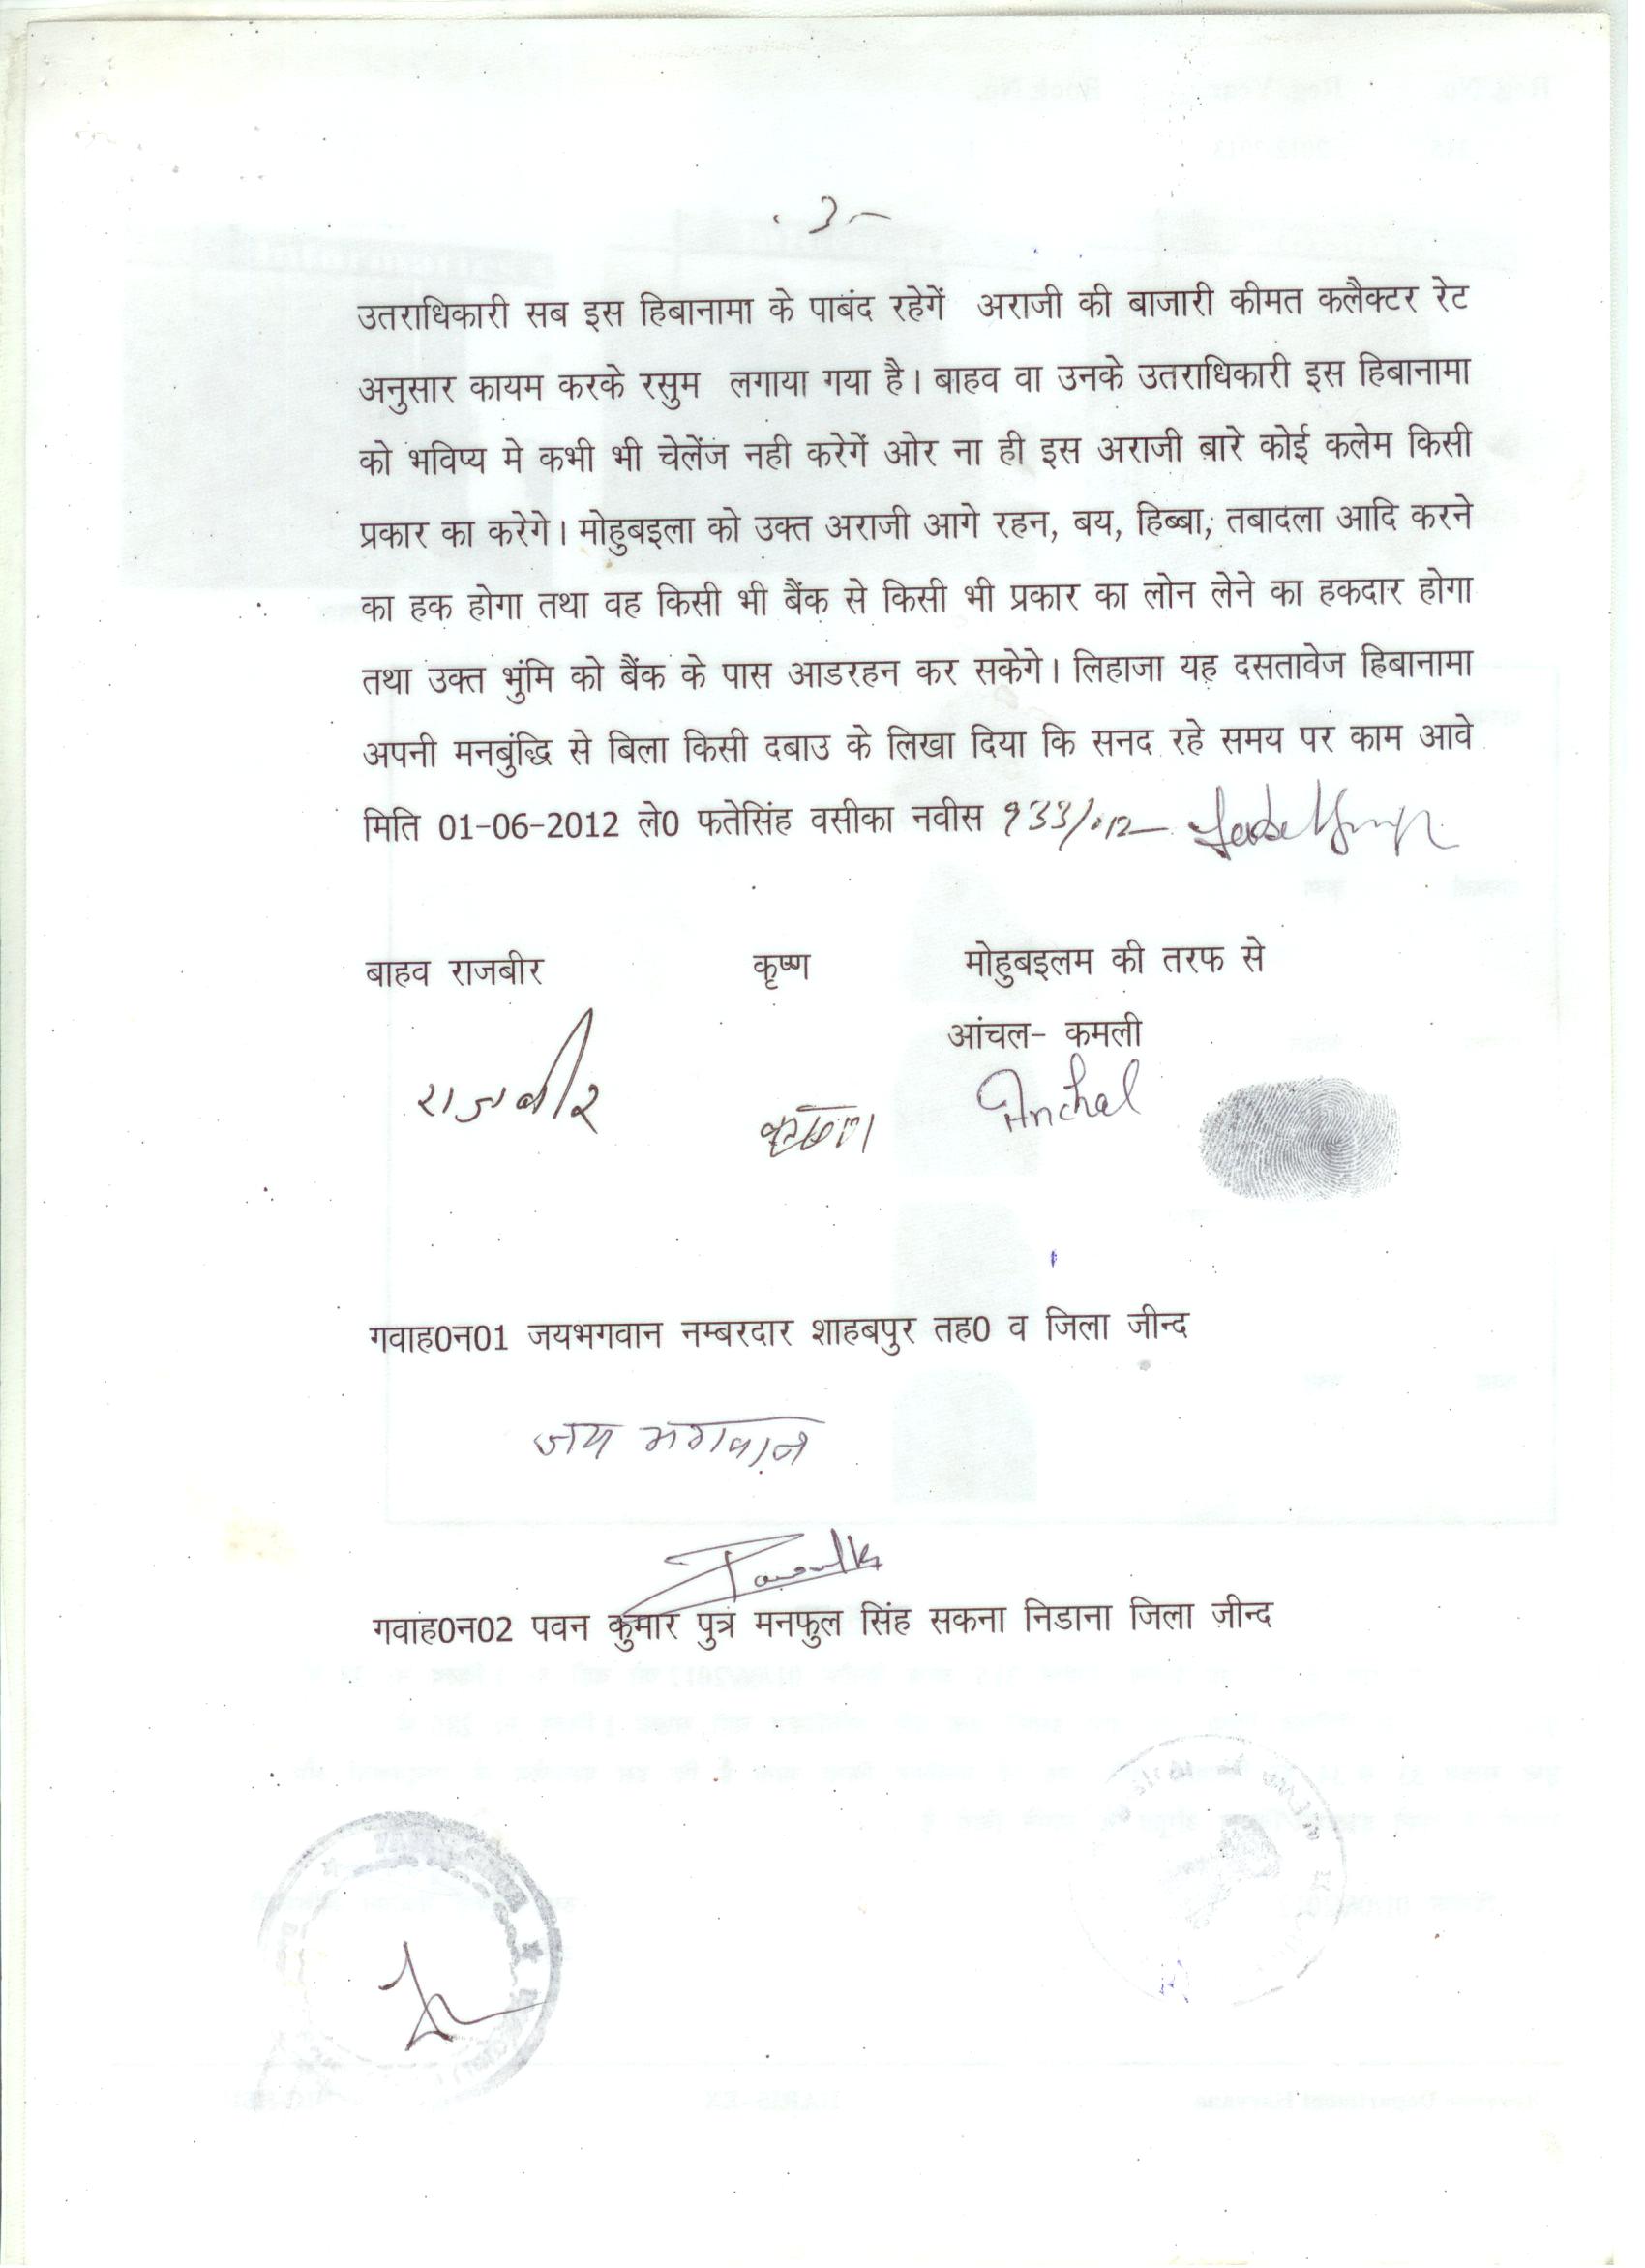 3-
उतराधिकारी सब इस हिबानामा के पाबंद रहेगें अराजी की बाजारी कीमत कलैक्टर रेट
अनुसार कायम करके रसुम लगाया गया है। बाहव वा उनके उतराधिकारी इस हिबानामा
को भविप्य मे कभी भी चेलेंज नही करेगें ओर ना ही इस अराजी बारे कोई कलेम किसी
प्रकार का करेगे। मोहुबइला को उक्त अराजी आगे रहन, बय, हिब्बा, तबादला आदि करने
का हक होगा तथा वह किसी भी बैंक से किसी भी प्रकार का लोन लेने का हकदार होगा
तथा उक्त भुंमि को बैंक के पास आडरहन कर सकेगे। लिहाजा यह दसतावेज हिबानामा
अपनी मनबुंद्धि से बिला किसी दबाउ के लिखा दिया कि सनद रहे समय पर काम आवे
मिति 01-06-2012 ले0 फतेसिंह वसीका नवीस
बाहव राजबीर कृष्ण मोहुबइलम की तरफ से
आंचल- कमली
राजबीर कृष्ण Anchal
गवाह0न01 जयभगवान नम्बरदार शाहबपुर तह0 व जिला जीन्द
जय भगवान
गवाह0न02 पवन कुमार पुत्र मनफुल सिंह सकना निडाना जिला जीन्द